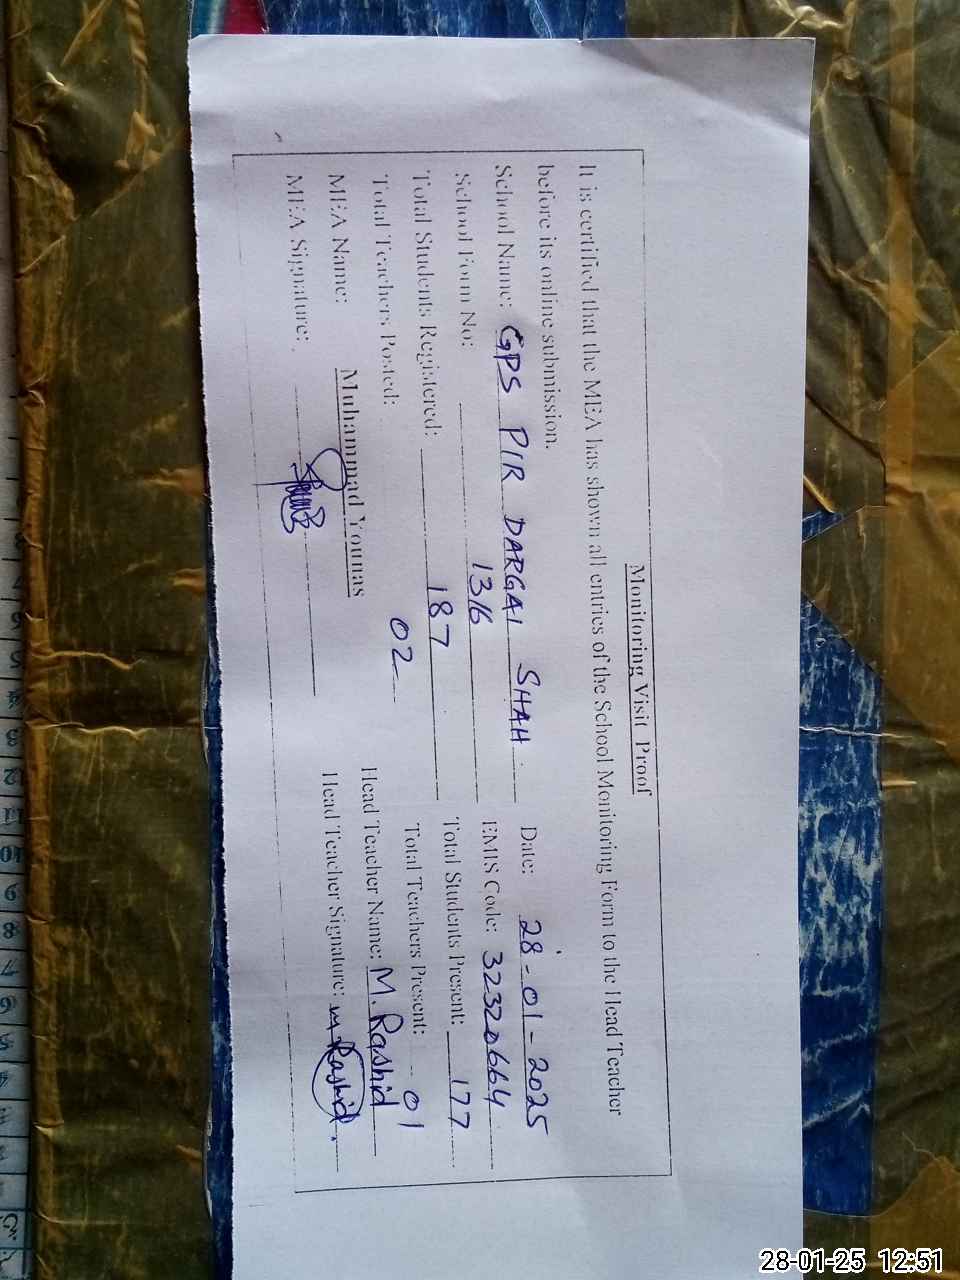 Monitoring Visit Proof
It is certified that the MEA has shown all entries of the School Monitoring Form to the Head Teacher
before its online submission.
School Name: GPS PIR DARGAI SHAH Date: 28-01-2025
School Form No: 1316 EMIS Code: 32320664
Total Students Registered: 187 Total Students Present: 177
Total Teachers Posted: 02 Total Teachers Present: 01
MEA Name: Muhammad Younas Head Teacher Name: M. Rashid
MEA Signature: Head Teacher Signature: M Rashid
28-01-25 12:51